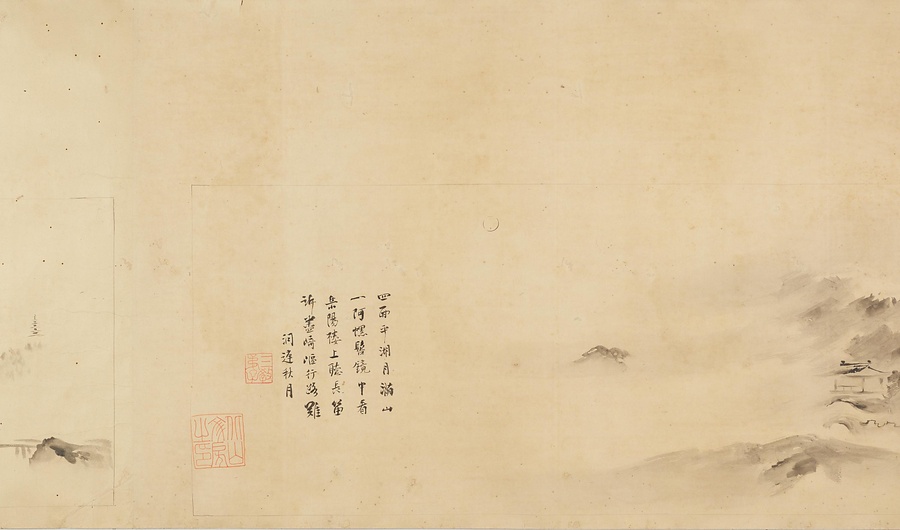 四面平湖月滿山
一阿螺髻鏡中看
岳陽樓上聽長笛
訴盡崎嶇行路難
洞庭秋月